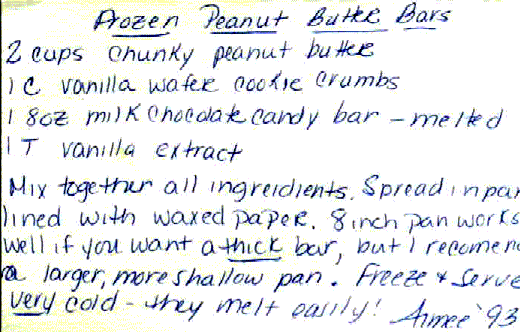 Frozen Peanut Butter Bars
2 cups chunky peanut butter
1 C vanilla wafer cookie crumbs
1 8oz milk chocolate candy bar - melted
1 T vanilla extract
Mix together all ingreidients. Spread in pan
lined with waxed paper. 8 inch pan works
well if you want a thick bar, but I recomend
a larger, more shallow pan. Freeze & serve
very cold - they melt easily! Aimee '93